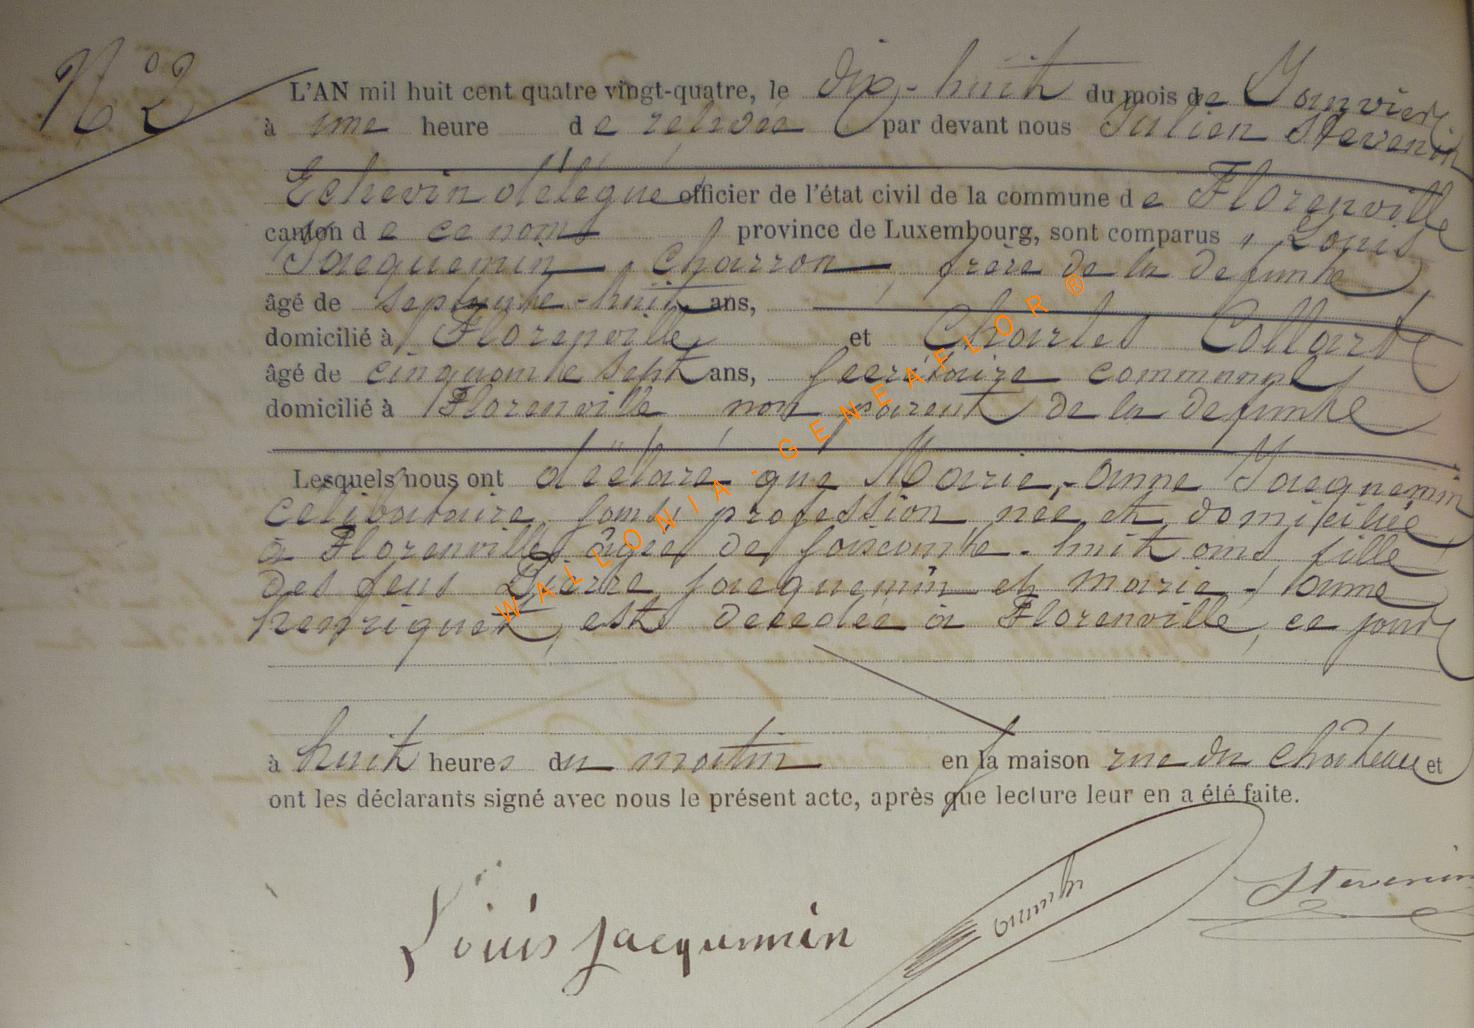 N° 2
L'AN mil huit cent quatre vingt-quatre, le dix-huit du mois de Janvier
à une heure de relevée par devant nous Julien Stevenin
Echevin délégué officier de l'état civil de la commune de Florenville
canton de ce nom province de Luxembourg, sont comparus, Louis
Jacquemin, Charron, frère de la defunte
âgé de septante-huit ans,
domicilié à Florenville et Charles Collard
âgé de cinquante sept ans, secrétaire communal
domicilié à Florenville non parent de la defunte
Lesquels nous ont déclaré que Marie-anne Jacquemin
célibataire, sans profession née et domiciliée
à Florenville, âgée de soixante-huit ans fille
des feus Pierre jacquemin et marie-anne
henriquet, est decedée à Florenville, ce jour
à huit heures du matin en la maison rue du château et
ont les déclarants signé avec nous le présent acte, après que lecture leur en a été faite.
Louis jacquemin
Stevenin
WALLONIA-GENEAFLOR®